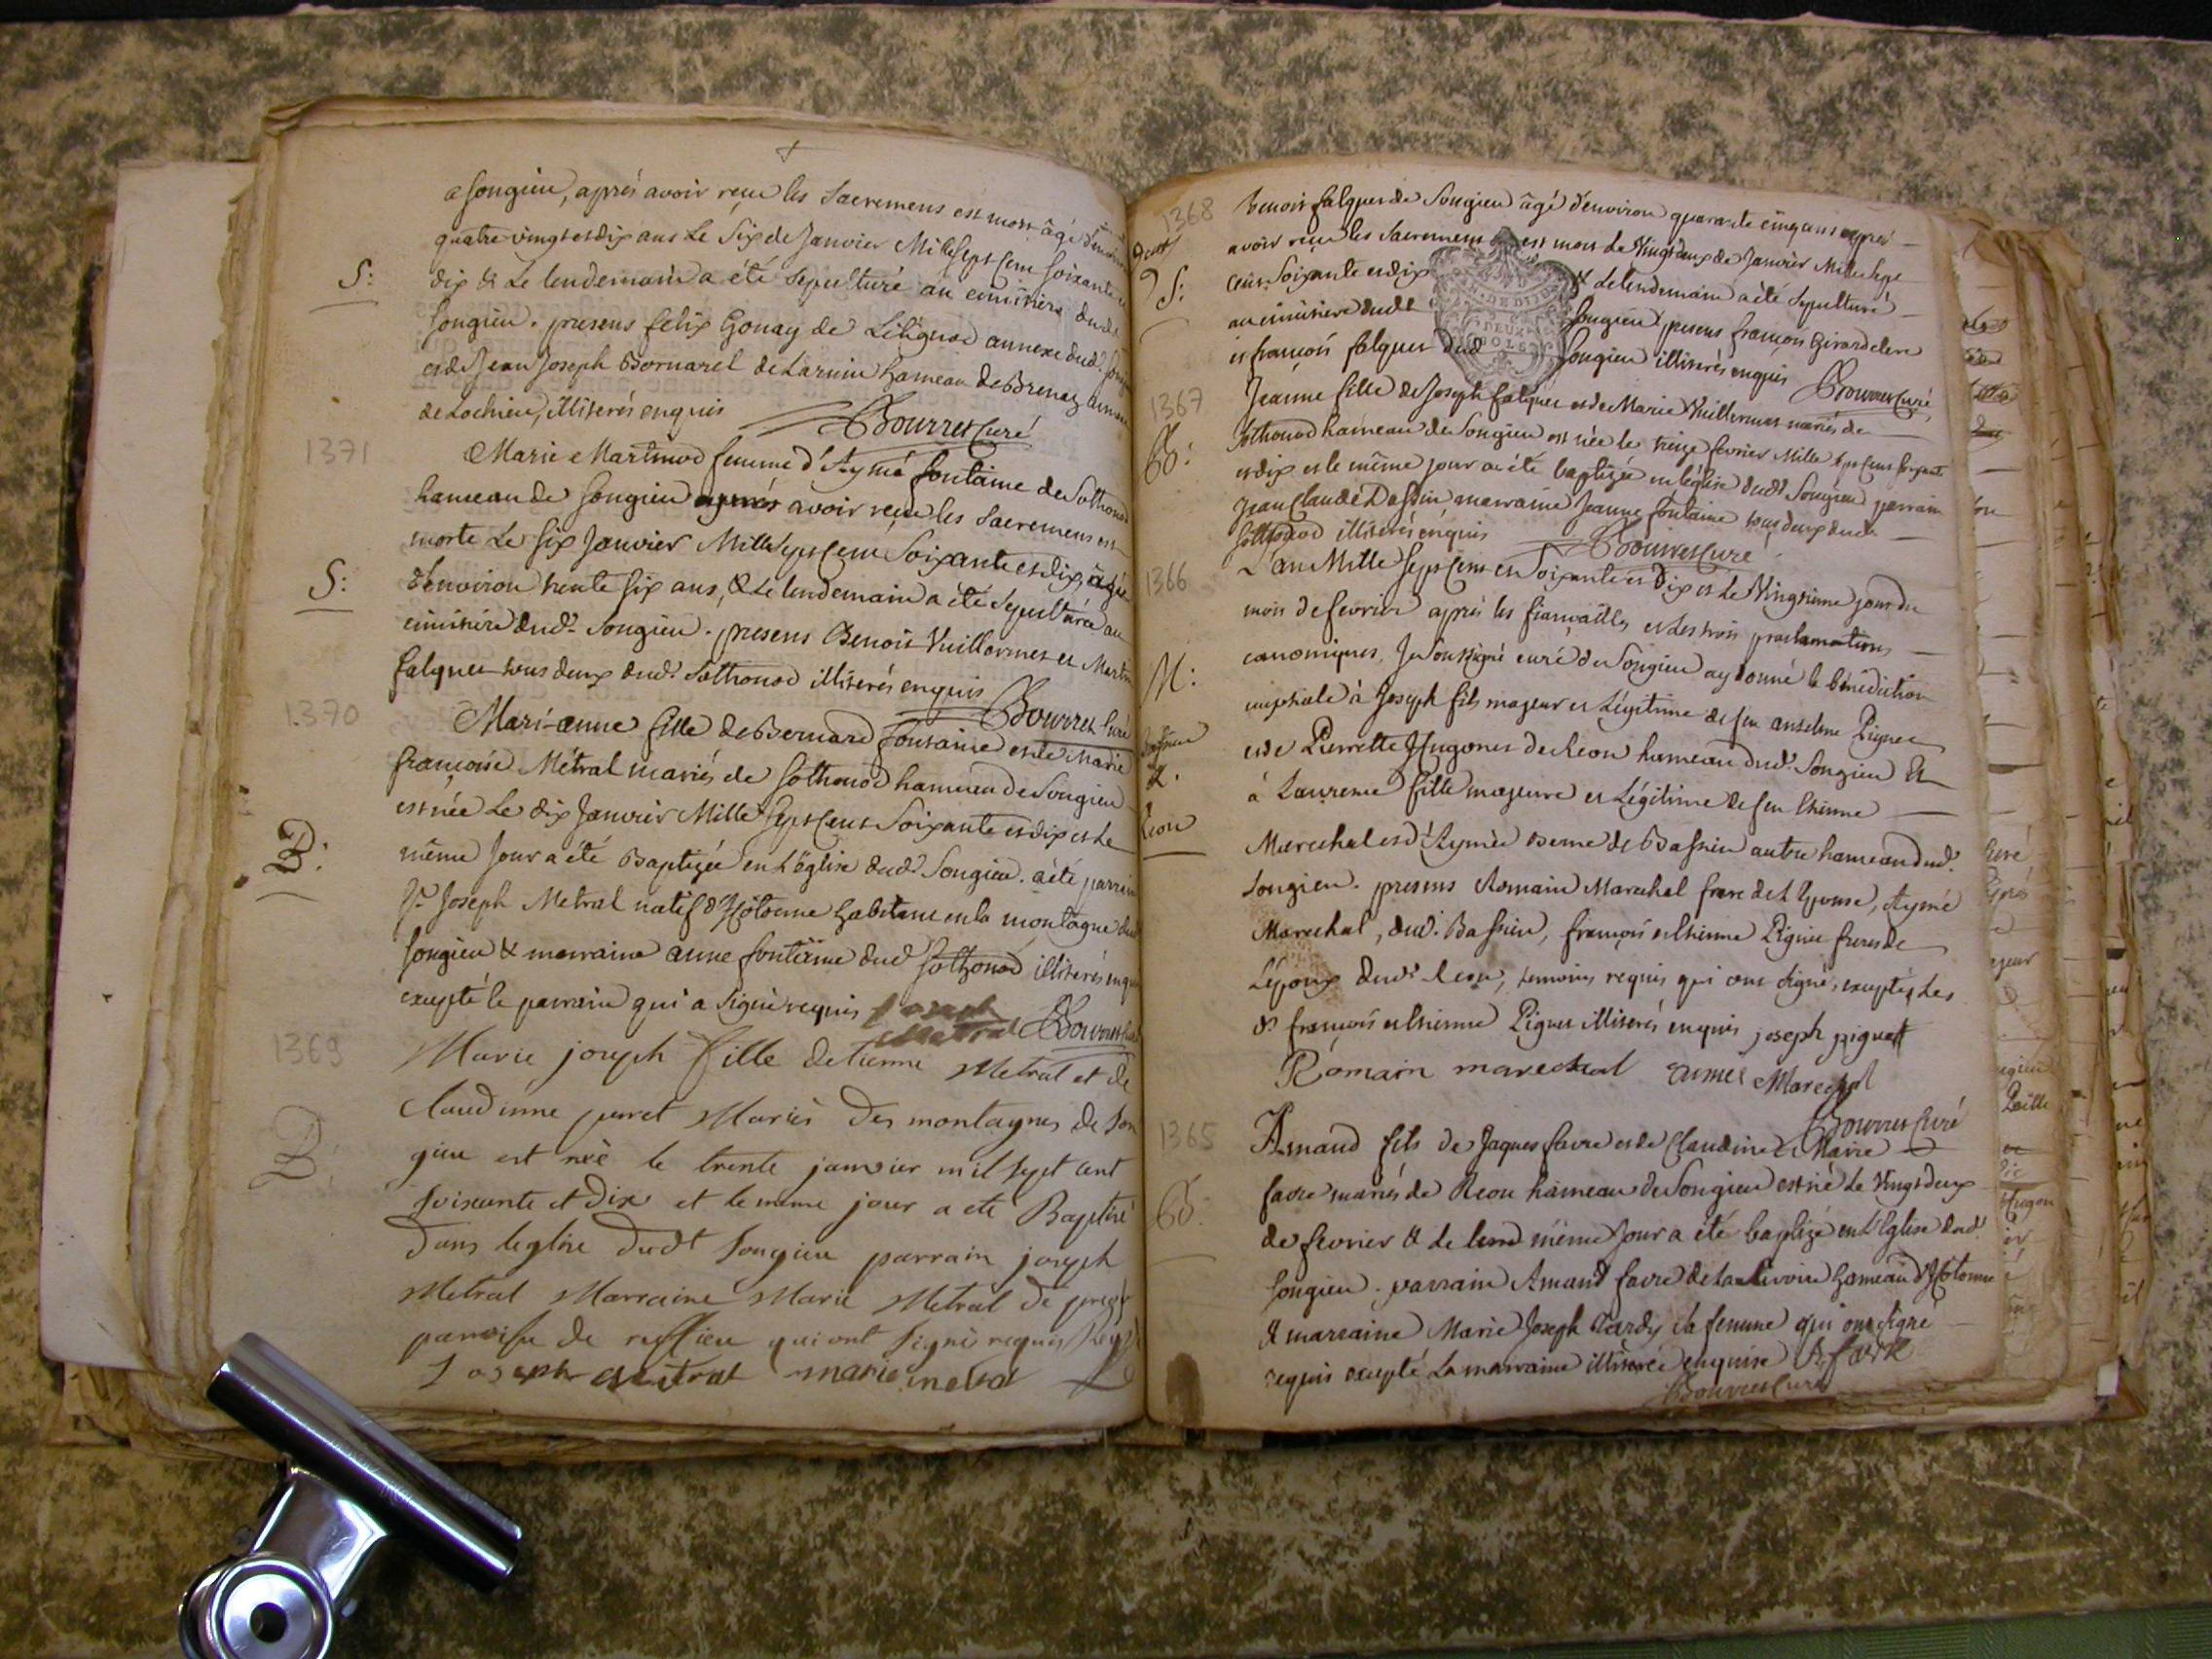 a Songieu, après avoir reçu les Sacremens est mort âgé d'environ
quatre vingt et dix ans Le Six de Janvier Mille Sept Cent Soixante et
S:
dix & Le lendemain a été sepulturé au cimitiere dudt
Songieu. presens felix Gonay de Lilignod annexe dud.
et de Jean Joseph Bornarel de hameau de Brenaz
de Lochieu, illiterés enquis Bourret Curé
1371
Marie Martinod femme d'Aymé fontaine de Sothonod
hameau de Songieu après avoir reçu les Sacremens est
morte Le Six Janvier Mille Sept Cent Soixante et dix, âgée
S:
d'environ trente six ans, & Le lendemain a été Sepulturée au
cimitiere dud. Songieu. presens Benoit Vuillermet et Martin
falquet tous deux dud. Sothonod illiterés enquis Bourret Curé
1370
Mari-anne fille de Bernard fontaine et de Marie
françoise Métral mariés de Sothonod hameau de Songieu
est née Le dix Janvier Mille Sept Cent Soixante et dix et Le
B:
même Jour a été Baptizée en L'église dud. Songieu. a été parrain
Sr. Joseph Metral natif d'Hotonne habitant en la montagne dud
Songieu & marraine anne fontaine dud Sothonod illiterés enquis
excepté le parrain qui a signé requis Joseph
Metral Bourret Curé
1369
Marie joseph fille detienne Metral et de
Claudinne puret Mariés des montagnes de Son
B:
gieu est née le trente janvier mil sept cent
soixante et dix et le meme jour a eté Baptisé
dans leglise dudt Songieu parrain joseph
Metral Marraine Marie Metral de
paroisse de ruffieu qui ont signé requis
Joseph Metral marie metral
1368
Benoit falquet de Songieu âgé d'environ quarante cinq ans après
avoir reçu les Sacremens est mort Le Vingt deux de Janvier Mille Sept
S:
Cent Soixante et dix & Le lendemain a été Sepulturé
au cimitiere dudt Songieu presens françois Girardclere
et françois falquet dud Songieu illiterés enquis Bourret Curé
1367
Jeanne fille de Joseph falquet et de Marie Vuillermet mariés de
B:
Sothonod hameau de Songieu est née le treize fevrier Mille Sept Cent Soixante
et dix et le même jour a été baptizée en l'église dudt Songieu parrain
Jean Claude Dassin marraine Jeanne fontaine tous deux dudt
Sothonod illiterés enquis Bourret Curé
1366
L'an Mille Sept Cent et Soixante et Dix et Le Vingtieme jour du
mois de fevrier après les fiançailles et les trois proclamations
M:
canoniques, Je Soussigné curé de Songieu ay donné la bénédiction
nuptiale à Joseph fils majeur et Légitime de feu anselme Piguet
et de Pierrette Hugonet de Reon hameau dud. Songieu &
à Laurence fille majeure et Légitime de feu Etienne
Reon
Marechal et d'Aymée de Bassieu autre hameau dud.
Songieu. presens Romain Marechal frere de L'Epouse, Aymé
Marechal, dud. Bassieu, françois et Etienne Piguet freres de
L'époux dud. Reon, temoins requis qui ont signé, exceptés Les
ds françois et Etienne Piguet illiterés enquis joseph piguet
Romain marechal aimé Marechal
Bourret Curé
1365
Amand fils de Jaques favre et de Claudine Marie
favre mariés de Reon hameau de Songieu est né Le Vingt deux
B:
de fevrier & le même Jour a été baptizé en L'Eglise dud.
Songieu. parrain Amand favre de hameau d'Hotonne
& marraine Marie Joseph Tardy sa femme qui ont signé
requis excepté La marraine illiterée enquise
Bourret Curé